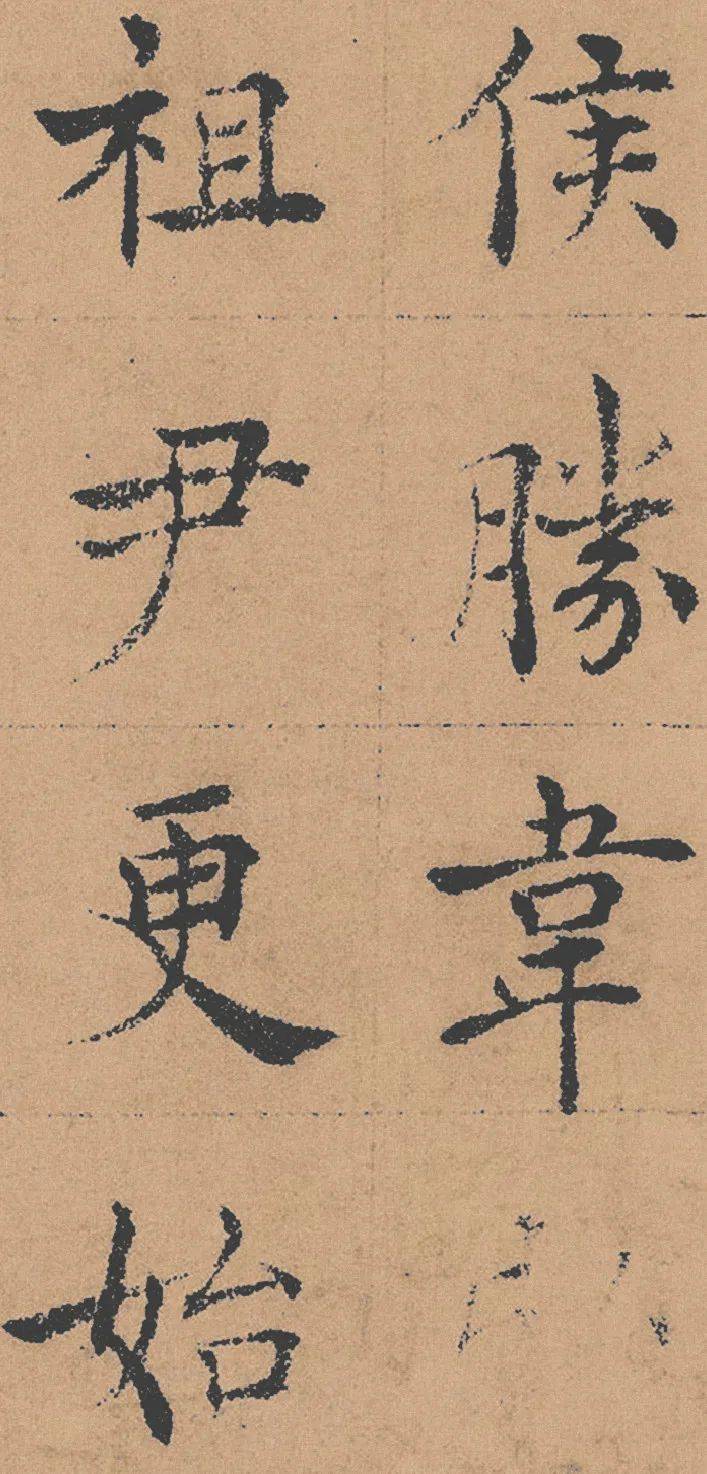 侯勝韋
祖尹更始